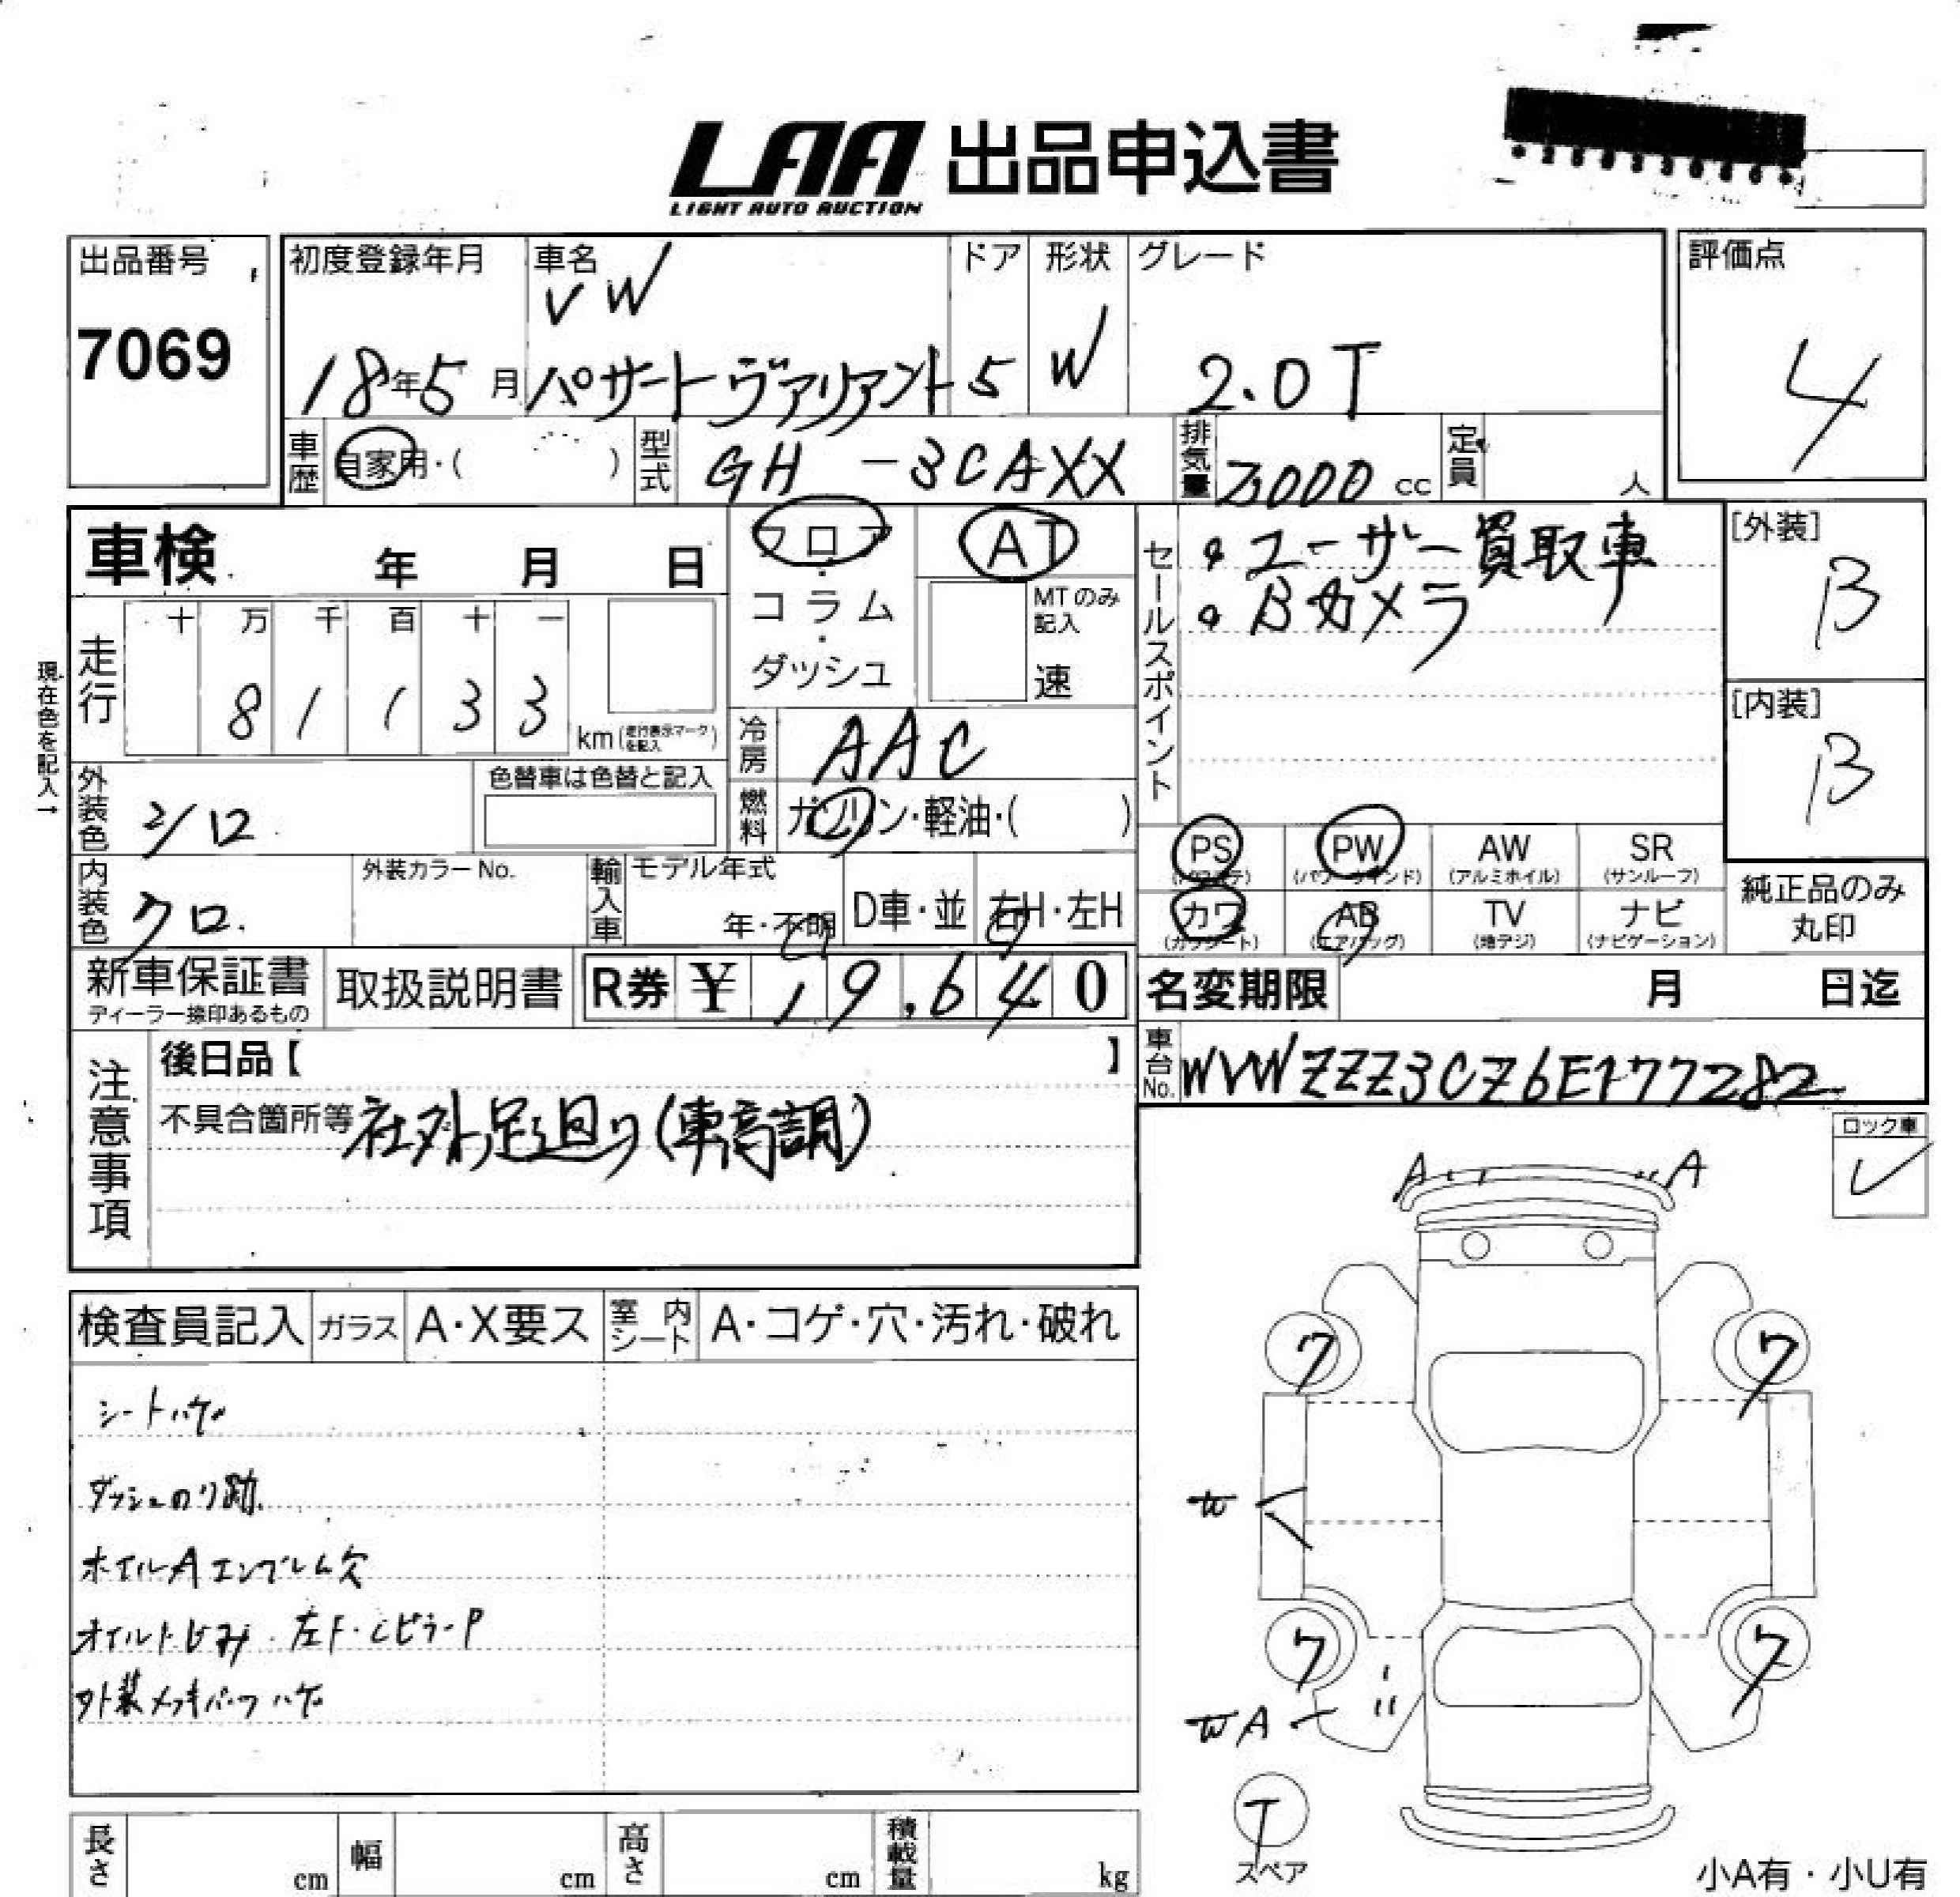 LAA 出品申込書
LIGHT AUTO AUCTION
出品番号
7069
初度登録年月
18年5月
車名
VW
パサートヴァリアント
ドア
5
形状
W
グレード
2.0T
評価点
4
車歴
自家用・( )
型式
GH -3CAXX
排気量
cc
定員
人
車検 年 月 日
フロア
・
コラム
・
ダッシュ
AT
MTのみ
記入
速
セールスポイント
・ユーザー買取車
・Bカメラ
[外装]
B
[内装]
B
現在色を記入→
走行
十 万 千 百 十 一
8 1 1 3 3
km(走行表示マークを記入)
冷房
AAC
外装色
シロ
色替車は色替と記入
燃料
ガソリン・軽油・( )
PS
(パワステ)
PW
(パワーウインド)
AW
(アルミホイル)
SR
(サンルーフ)
内装色
クロ.
外装カラーNo.
輸入車
モデル年式
年・不明
D車・並
右H・左H
カワ
(カワシート)
AB
(エアバッグ)
TV
(地デジ)
ナビ
(ナビゲーション)
純正品のみ
丸印
新車保証書
ディーラー捺印あるもの
取扱説明書
R券 ¥ 19.640
名変期限 月 日迄
車台No.
WVWZZZ3CZ6E177282
注意事項
後日品【 】
不具合箇所等 社外足廻り(車高調)
ロック車
レ
検査員記入
ガラス
A・X要ス
室内シート
A・コゲ・穴・汚れ・破れ
シートハゲ
ダッシュのり跡.
ホイルA エンブレム欠
オイルにじみ . 左F・CピラーP
外装メッキパーツハゲ
A A
ワ ワ
ワ ワ
A
T
スペア
長さ cm
幅 cm
高さ cm
積載量 kg
小A有・小U有